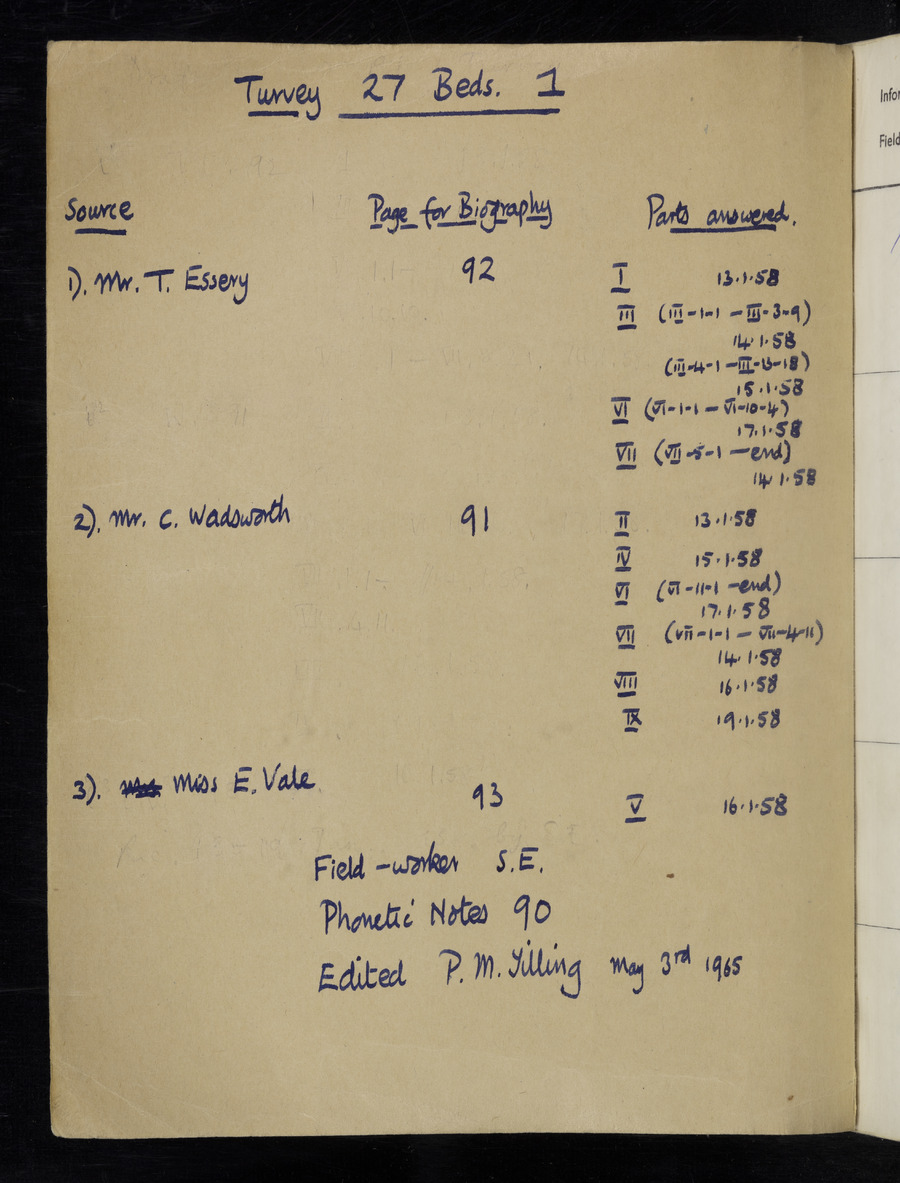 Turvey 27 Beds. 1
Source Page for Biography Parts answered.
1). Mr. T. Essery 92 I 13.1.58
III (III-1-1 — III-3-9)
14.1.58
(III-4-1 — III-13-18)
15.1.58
VI (VI-1-1 — VI-10-4)
17.1.58
VII (VII-5-1 — end)
14.1.58
2). Mr. C. Wadsworth 91 II 13.1.58
IV 15.1.58
VI (VI-11-1 — end)
17.1.58
VII (VII-1-1 — VII-4-11)
14.1.58
VIII 16.1.58
IX 19.1.58
3). Miss E. Vale 93 V 16.1.58
Field-worker S.E.
Phonetic Notes 90
Edited P.M. Tilling May 3rd 1965
Infor
Field